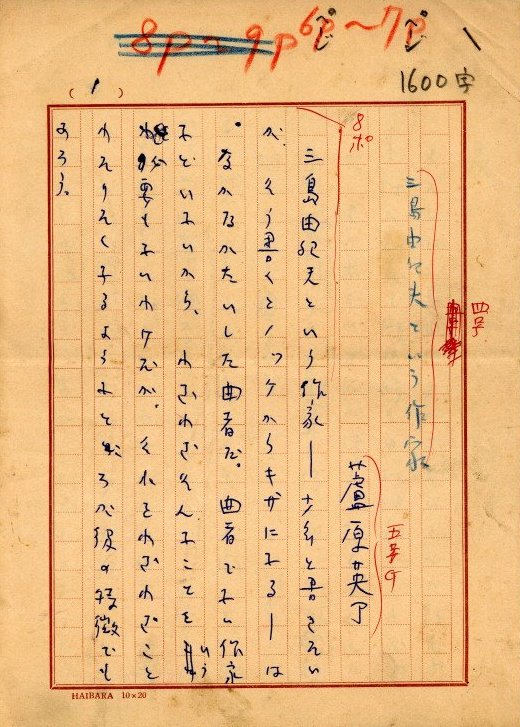 8p~9p 6p~7p
1600字
(1)
三島由紀夫という作家
四号
蘆原英了
五号G
8ポ
三島由紀夫という作家――などと書きたい
が、そう書くとノッケからキザになる――は
なかなかたいした曲者だ。曲者でない作家
などいないから、わざわざそんなことをいう
必要もないわけだが、それをわざわざこと
わりたくなるようなところが彼の特徴でも
あろう。
HAIBARA 10×20